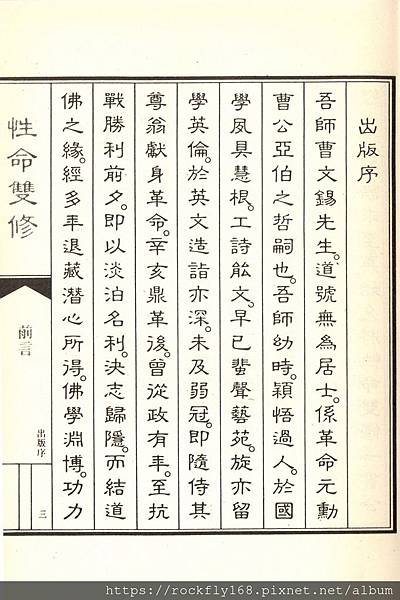 出版序
吾師曹文錫先生。道號無為居士。係革命元勳
曹公亞伯之哲嗣也。吾師幼時。穎悟過人。於國
學夙具慧根。工詩能文。早已蜚聲藝苑。旋亦留
學英倫。於英文造詣亦深。未及弱冠。即隨侍其
尊翁獻身革命。辛亥鼎革後。曾從政有年。至抗
戰勝利前夕。即以淡泊名利。決志歸隱。而結道
佛之緣。經多年退藏潛心所得。佛學淵博。功力
性命雙修
前言
出版序
三
https://rockfly168.pixnet.net/album